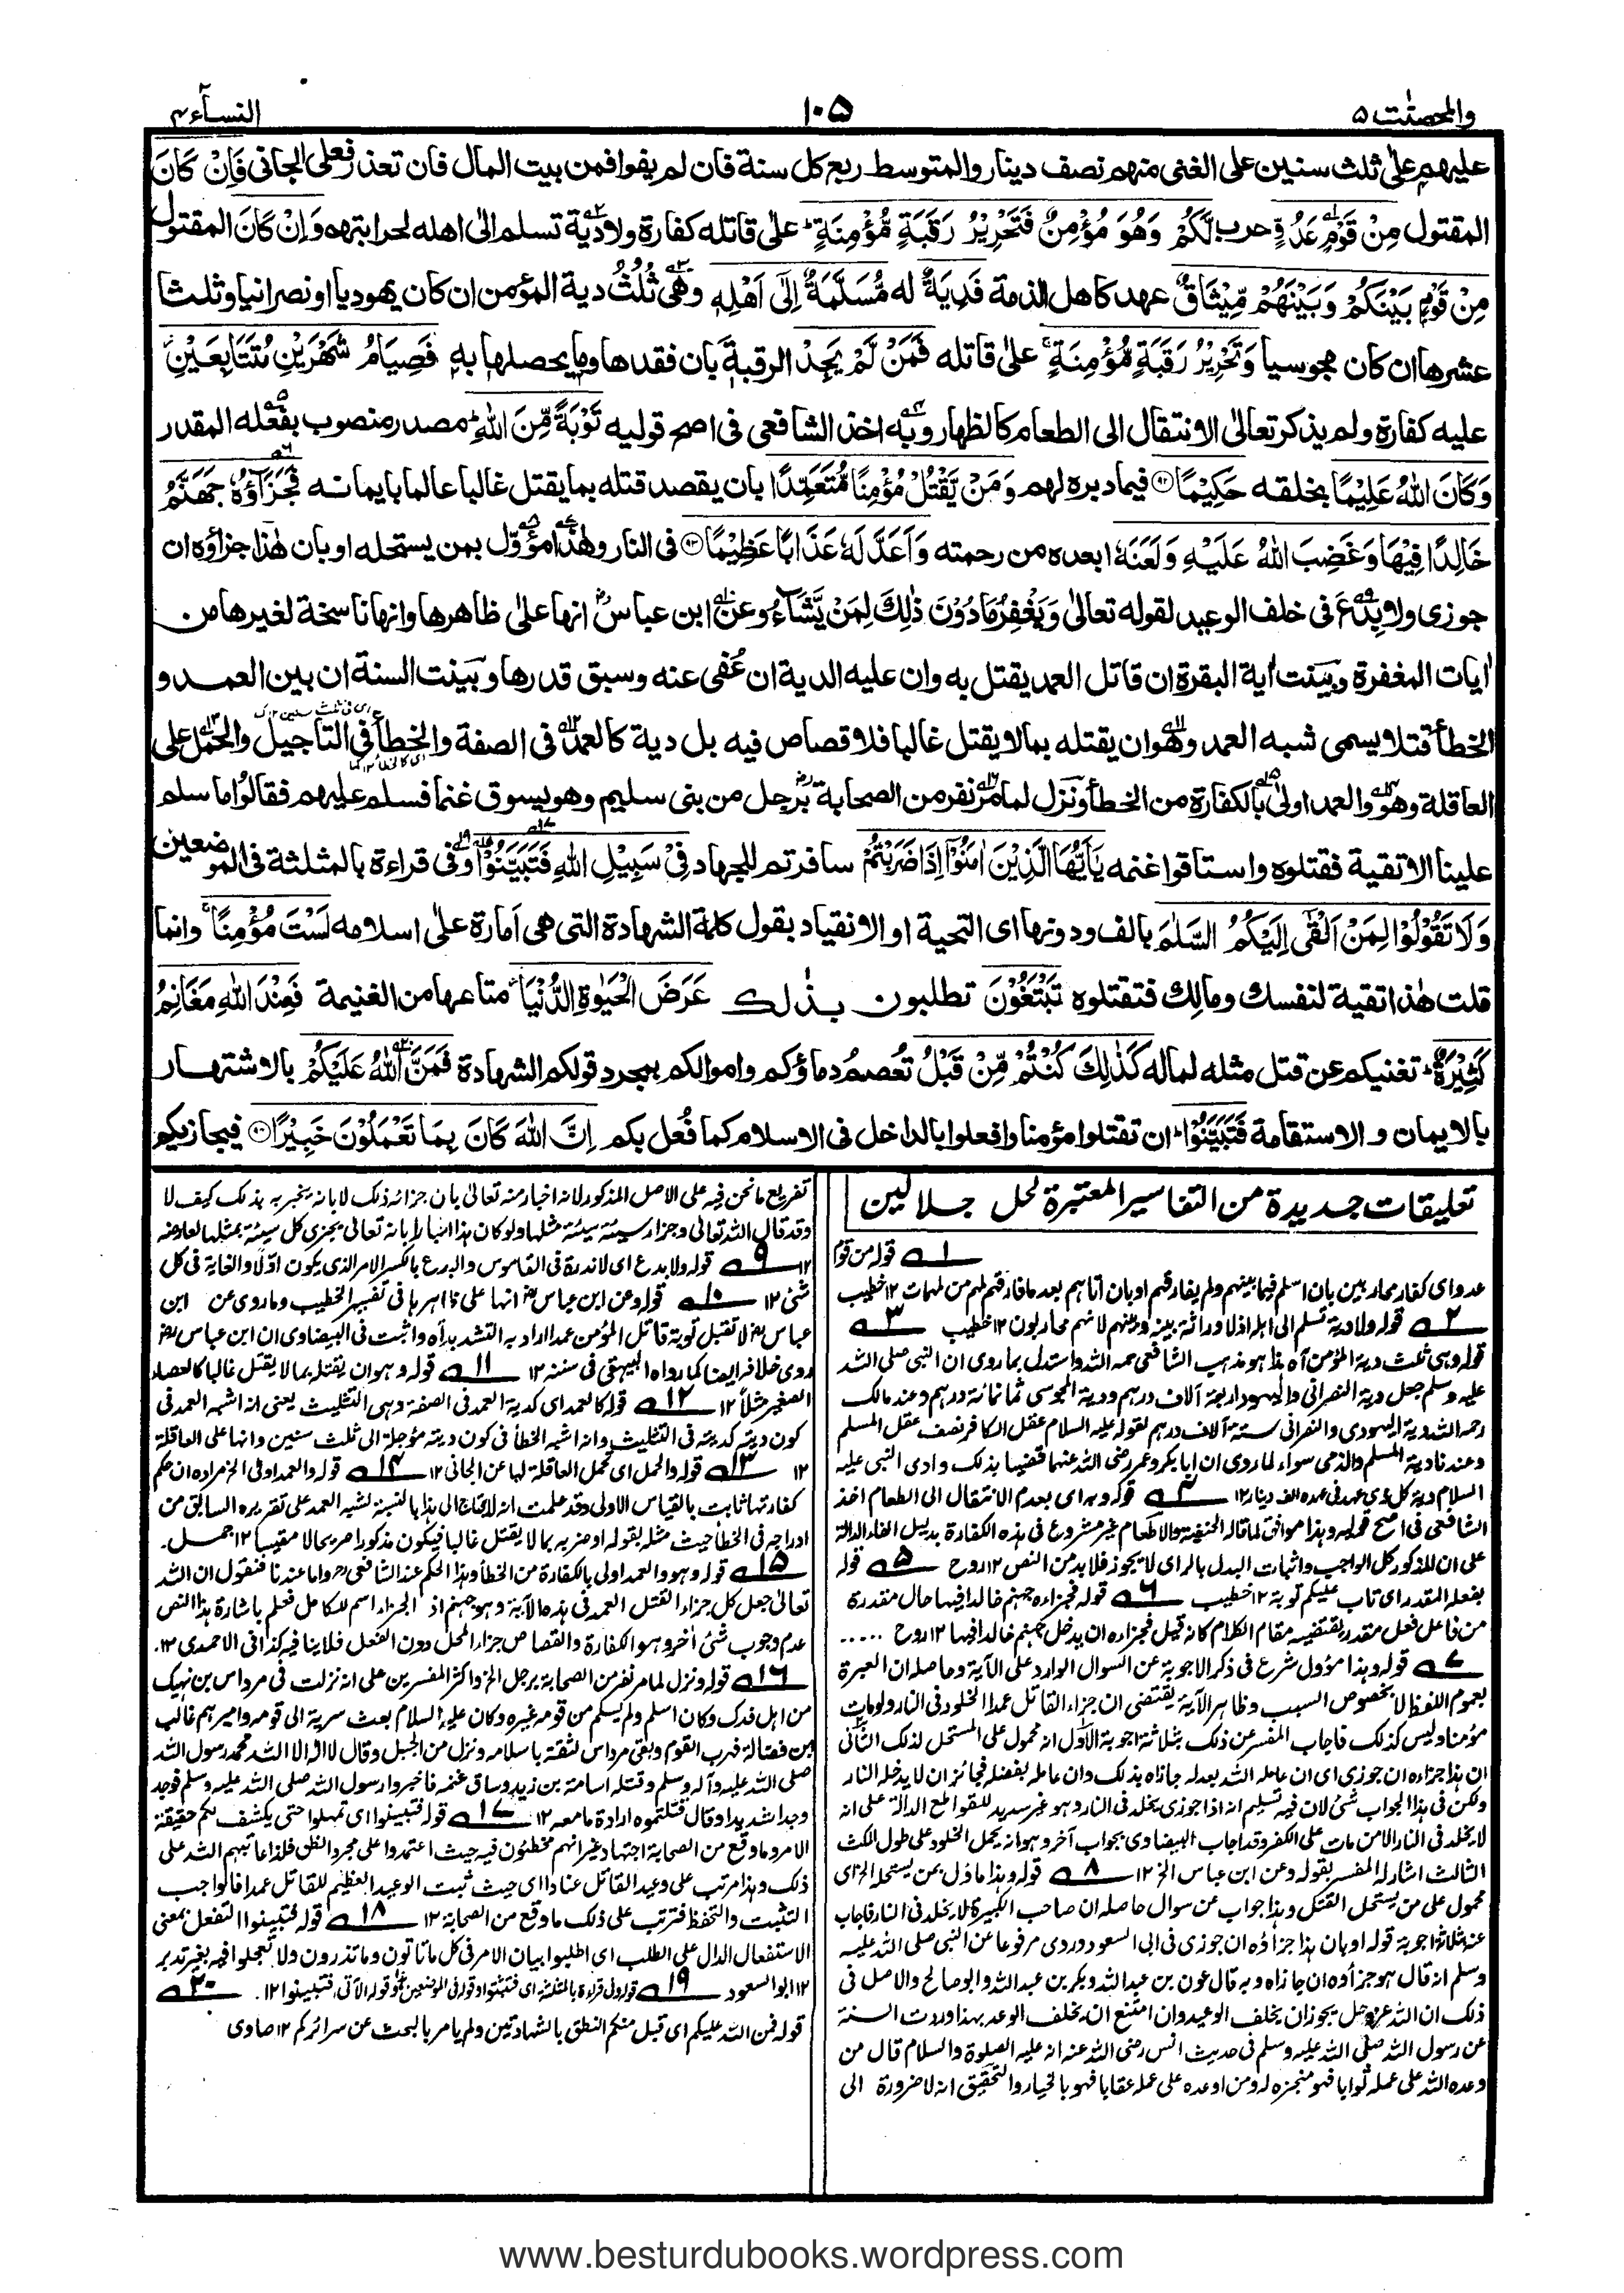 والمحصنٰت ۵
۱۰۵
النسآء ۴
عليهم علىٰ ثلث سنين على الغنى منهم نصف دينار والمتوسط ربع كل سنة فان لم يفوا فمن بيت المال فان تعذر فعلى الجانى فَاِنْ كَانَ
المقتول مِنْ قَوْمٍ عَدُوٍّ حرب لَّكُمْ وَهُوَ مُؤْمِنٌ فَتَحْرِيْرُ رَقَبَةٍ مُّؤْمِنَةٍ علىٰ قاتله كفارة ولا دية تسلم الىٰ اهله لحرابتهم وَاِنْ كَانَ المقتول
مِنْ قَوْمٍ بَيْنَكُمْ وَبَيْنَهُمْ مِّيْثَاقٌ عهد كاهل الذمة فَدِيَةٌ له مُّسَلَّمَةٌ اِلٰٓى اَهْلِهٖ وهى ثُلُثُ دية المؤمن ان كان يهوديا او نصرانيا وثلثا
عشرها ان كان مجوسيا وَتَحْرِيْرُ رَقَبَةٍ مُّؤْمِنَةٍ علىٰ قاتله فَمَنْ لَّمْ يَجِدْ الرقبة بان فقدها وما يحصلها به فَصِيَامُ شَهْرَيْنِ مُتَتَابِعَيْنِ
عليه كفارة ولم يذكر تعالىٰ الانتقال الى الطعام كالظهار وبه اخذ الشافعى فى اصح قوليه تَوْبَةً مِّنَ اللّٰهِ مصدر منصوب بفعله المقدر
وَكَانَ اللّٰهُ عَلِيْمًا بخلقه حَكِيْمًا ۹۲ فيما دبره لهم وَمَنْ يَّقْتُلْ مُؤْمِنًا مُّتَعَمِّدًا بان يقصد قتله بما يقتل غالبا عالما بايمانه فَجَزَآؤُهٗ جَهَنَّمُ
خَالِدًا فِيْهَا وَغَضِبَ اللّٰهُ عَلَيْهِ وَلَعَنَهٗ ابعده من رحمته وَاَعَدَّ لَهٗ عَذَابًا عَظِيْمًا ۹۳ فى النار وهٰذا مؤوّل بمن يستحله او بان هٰذا جزاؤه ان
جوزى ولا بِدْعَ فى خلف الوعيد لقوله تعالىٰ وَيَغْفِرُ مَا دُوْنَ ذٰلِكَ لِمَنْ يَّشَآءُ وعن ابن عباسؓ انها علىٰ ظاهرها وانها ناسخة لغيرها من
اٰيات المغفرة وبَيّنت اٰية البقرة ان قاتل العمد يقتل به وان عليه الدية ان عُفى عنه وسبق قدرها وبيّنت السنة ان بين العمد و
الخطأ قتلا يسمى شبه العمد وهو ان يقتله بما لا يقتل غالبا فلا قصاص فيه بل دية كالعمد فى الصفة والخطأ فى التأجيل والحمل على
العاقلة وهو والعمد اولىٰ بالكفارة من الخطأ ونزل لما مرّ نفر من الصحابة برجل من بنى سليم وهو يسوق غنما فسلم عليهم فقالوا ما سلم
علينا الا تقية فقتلوه واستاقوا غنمه يٰٓاَيُّهَا الَّذِيْنَ اٰمَنُوْٓا اِذَا ضَرَبْتُمْ سافرتم للجهاد فِيْ سَبِيْلِ اللّٰهِ فَتَبَيَّنُوْا وفى قراءة بالمثلثة فى الموضعين
وَلَا تَقُوْلُوْا لِمَنْ اَلْقٰٓى اِلَيْكُمُ السَّلٰمَ بالف ودونها اى التحية او الانقياد بقول كلمة الشهادة التى هى اَمارة علىٰ اسلامه لَسْتَ مُؤْمِنًا وانما
قلت هٰذا تقية لنفسك ومالك فتقتلوه تَبْتَغُوْنَ تطلبون بذٰلك عَرَضَ الْحَيٰوةِ الدُّنْيَا متاعها من الغنيمة فَعِنْدَ اللّٰهِ مَغَانِمُ
كَثِيْرَةٌ تغنيكم عن قتل مثله لماله كَذٰلِكَ كُنْتُمْ مِّنْ قَبْلُ تُعصم دماؤكم واموالكم بمجرد قولكم الشهادة فَمَنَّ اللّٰهُ عَلَيْكُمْ بالاشتهار
بالايمان والاستقامة فَتَبَيَّنُوْا ان تقتلوا مؤمنا وافعلوا بالداخل فى الاسلام كما فُعل بكم اِنَّ اللّٰهَ كَانَ بِمَا تَعْمَلُوْنَ خَبِيْرًا فيجازيكم
تعليقات جديدة من التفاسير المعتبرة لحل جلالين
۱ قوله من قوم
عدو اى كفار محاربين بان اسلم فيما بينهم ولم يفارقهم او بان اتاهم بعد ما فارقهم لمهم من المهمات ۱۲ خطيب
۲ قوله ولا دية تسلم الى اهله اذ لا وراثة بينه وبينهم لانهم محاربون ۱۲ خطيب ۳
قوله وهى ثلث دية المؤمن آه هذا هو مذهب الشافعى رحمه الله واستدل بما روى ان النبى صلى الله
عليه وسلم جعل دية النصرانى واليهود اربعة آلاف درهم ودية المجوسى ثمانمائة درهم وعند مالك
رحمه الله دية اليهودى والنصرانى ستة آلاف درهم لقوله عليه السلام عقل الكافر نصف عقل المسلم
وعندنا دية المسلم والذمى سواء لما روى ان ابا بكر وعمر رضى الله عنهما قضيا بذلك وادى النبى عليه
السلام دية كل ذى عهد فى عهده الف دينار ۱۲ ۴ قوله وبه اى بعدم الانتقال الى الطعام اخذ
الشافعى فى اصح قوليه وهذا موافق لما قاله الحنفية والاطعام غير مشروع فى هذه الكفارة بدليل الفاء الدالة
على ان المذكور كل الواجب واثبات البدل بالراى لا يجوز فلا بد من النص ۱۲ روح ۵ قوله
بفعله المقدر اى تاب عليكم توبة ۱۲ خطيب ۶ قوله فجزاءه جهنم خالدا فيها حال مقدرة
من فاعل فعل مقدر يقتضيه مقام الكلام كانه قيل فجزاءه ان يدخل جهنم خالدا فيها ۱۲ روح .....
۷ قوله وهذا مؤول شرع فى ذكر الاجوبة عن السوال الوارد على الآية وحاصله ان العبرة
بعموم اللفظ لا بخصوص السبب وظاهر الآية يقتضى ان جزاء القاتل عمدا الخلود فى النار ولو مات
مؤمنا وليس كذلك فاجاب المفسر عن ذلك بثلاثة اجوبة الاول انه محمول على المستحل لذلك الثانى
ان هذا جزاءه ان جوزى اى ان عامله الله بعدله جازاه بذلك وان عامله بفضله فجائز ان لا يدخله النار
ولكن فى هذا الجواب شئ لان فيه تسليم انه اذا جوزى يخلد فى النار وهو غير سديد للقواطع الدالة على انه
لا يخلد فى النار الا من مات على الكفر وقد اجاب البيضاوى بجواب آخر وهو انه يحمل الخلود على طول المكث
الثالث اشار له المفسر بقوله وعن ابن عباس الخ ۱۲ ۸ قوله وهذا ماؤل بمن يستحله الخ اى
محمول على من يستحل القتل وهذا جواب عن سوال حاصله ان صاحب الكبيرة لا يخلد فى النار فاجاب
عنه بثلاثة اجوبة قوله او بان هذا جزاؤه ان جوزى فى ابى السعود وروى مرفوعا عن النبى صلى الله عليه
وسلم انه قال هو جزاؤه ان جازاه وبه قال عون بن عبد الله وبكر بن عبد الله وابو صالح والاصل فى
ذلك ان الله عز وجل يجوز ان يخلف الوعيد وان امتنع ان يخلف الوعد بهذا وردت السنة
عن رسول الله صلى الله عليه وسلم فى حديث انس رضى الله عنه انه عليه الصلوة والسلام قال من
وعده الله على عمله ثوابا فهو منجزه له ومن اوعده على عمله عقابا فهو بالخيار والتحقيق انه لا ضرورة الى
تفريع ما نحن فيه على الاصل المذكور لانه اخبار منه تعالى بان جزاءه ذلك لا بانه يخبر به بذلك كيف لا
وقد قال الله تعالى وجزاء سيئة سيئة مثلها ولو كان هذا اخبارا بانه تعالى يجزى كل سيئة بمثلها لعارضه
۱۲ ۹ قوله ولا بدع اى لا ندرة فى القاموس والبدع بالكسر الامر الذى يكون اولا والغاية فى كل
شئ ۱۲ ۱۰ قوله وعن ابن عباسؓ انها على ظاهرها فى تفسير الخطيب وما روى عن ابن
عباسؓ لا تقبل توبة قاتل المؤمن عمدا اراد به التشديد آه واثبت فى البيضاوى ان ابن عباسؓ
روى خلافه ايضا كما رواه البيهقى فى سننه ۱۲ ۱۱ قوله وهو ان يقتله بما لا يقتل غالبا كالعصا
الصغير مثلا ۱۲ ۱۲ قوله كالعمد اى كدية العمد فى الصفة وهى التثليث يعنى انه اشبه العمد فى
كون ديته كديته فى التثليث وانه اشبه الخطأ فى كون ديته مؤجلة الى ثلث سنين وانها على العاقلة
۱۲ ۱۳ قوله والحمل اى تحمل العاقلة لها عن الجانى ۱۲ ۱۴ قوله والعمد اولى الخ مراده ان حكم
كفارتها ثابت بالقياس الاولى وقد علمت انه لا يحتاج الى هذا بالنسبة لشبه العمد على تقريره السابق من
ادراجه فى الخطأ حيث مثله بقوله او ضربه بما لا يقتل غالبا فيكون مذكورا صريحا لا مقيسا ۱۲ جمل .
۱۵ قوله وهو والعمد اولى بالكفارة من الخطأ وهذا الحكم عند الشافعىؒ واما عندنا فنقول ان الله
تعالى جعل كل جزاء القتل العمد فى هذه الآية وهو جهنم اذ الجزاء اسم للكامل فعلم باشارة هذا النص
عدم وجوب شئ آخر وهو الكفارة والقصاص جزاء المحل دون الفعل فلا ينافيه كذا فى الاحمدى ۱۲ .
۱۶ قوله ونزل لما مر نفر من الصحابة برجل الخ واكثر المفسرين على انه نزلت فى مرداس بن نهيك
من اهل فدك وكان اسلم ولم يسلم من قومه غيره وكان عليه السلام بعث سرية الى قومه واميرهم غالب
بن فضالة فهرب القوم وبقى مرداس لثقته باسلامه ونزل من الجبل وقال لا اله الا الله محمد رسول الله
صلى الله عليه وآله وسلم وقتله اسامة بن زيد وساق غنمه فاخبروا رسول الله صلى الله عليه وسلم فوجد
وجدا شديدا وقال قتلتموه ارادة ما معه ۱۲ ۱۷ قوله فتبينوا اى تمهلوا حتى يكشف لكم حقيقة
الامر وما وقع من الصحابة اجتهاد غير انهم مخطئون فيه حيث اعتمدوا على مجرد الظن فلذا عاتبهم الله على
ذلك وهذا مرتب على وعيد القاتل عنادا اى حيث ثبت الوعيد العظيم للقاتل عمدا فالواجب
التثبت والتحفظ فترتب على ذلك ما وقع من الصحابة ۱۲ ۱۸ قوله فتبينوا التفعل بمعنى
الاستفعال الدال على الطلب اى اطلبوا بيان الامر فى كل ما تاتون وما تذرون ولا تعجلوا فيه بغير تدبر
۱۲ ابو السعود ۱۹ قوله وفى قراءة بالمثلثة اى فتثبتوا وقوله فى الموضعين هو قوله الآتى فتبينوا ۱۲ . ۲۰
قوله فمن الله عليكم اى قبل منكم النطق بالشهادتين ولم يامر بالبحث عن سرائركم ۱۲ صاوى
www.besturdubooks.wordpress.com